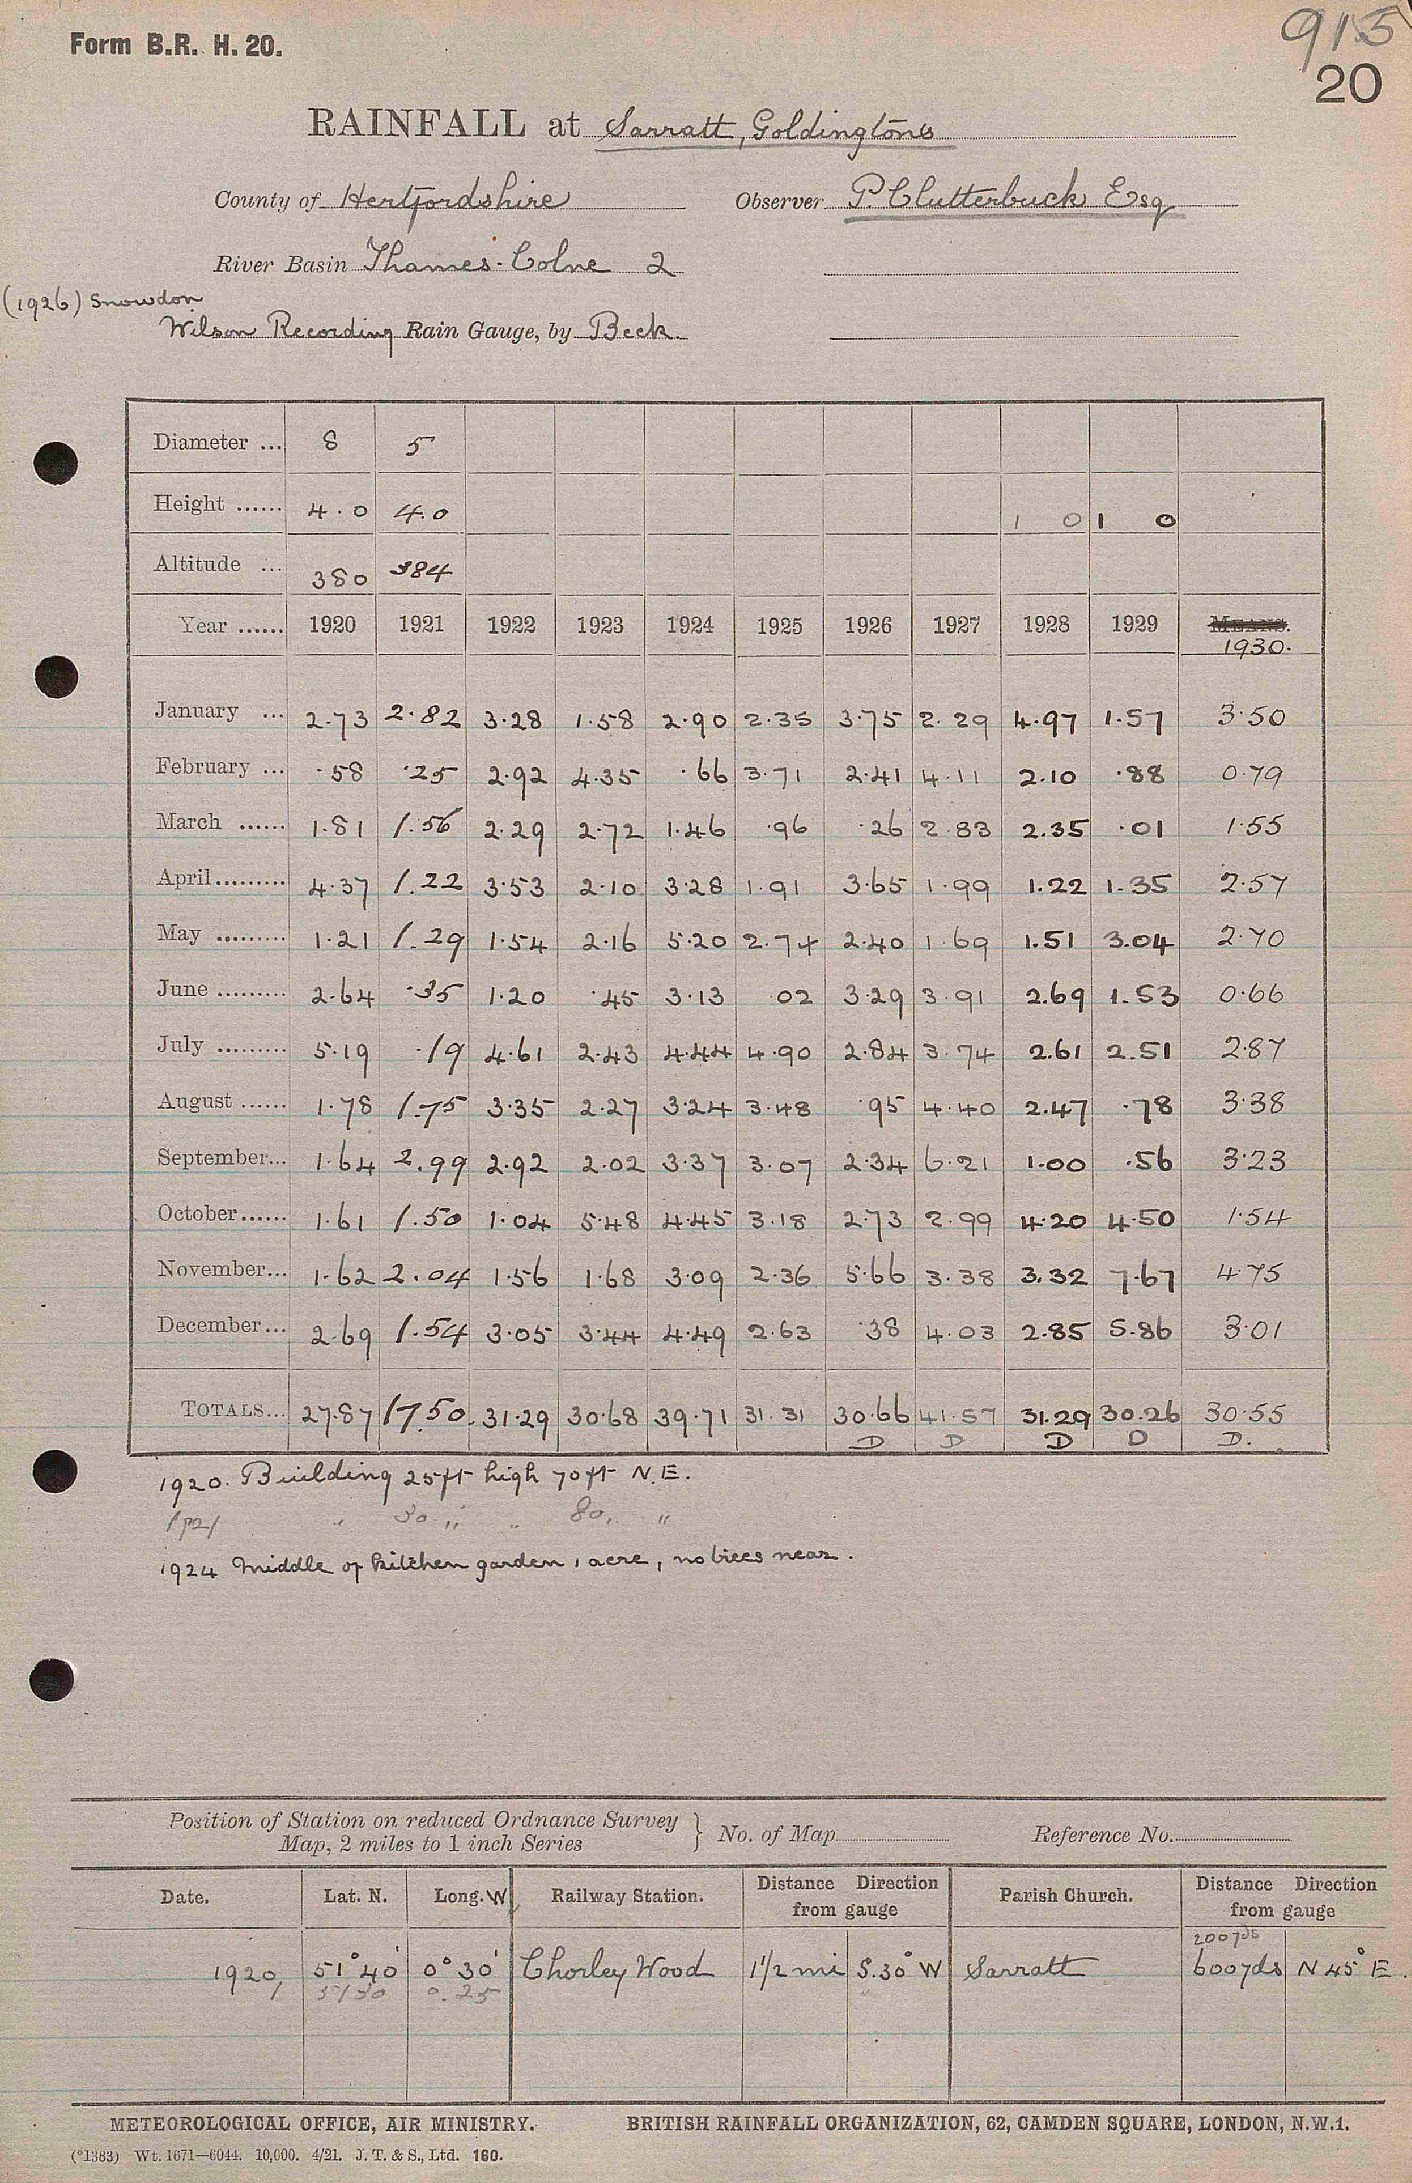 915
Form B.R. H. 20.
20
RAINFALL at Sarratt, Goldingtons
County of Hertfordshire Observer P. Clutterbuck Esq
River Basin Thames. Colne 2
(1926) Snowdon
Wilson Recording Rain Gauge, by Beck.
Diameter ... 8 5
Height ...... 4.0 4.0 1 0 1 0
Altitude ... 380 384
Year ...... 1920 1921 1922 1923 1924 1925 1926 1927 1928 1929 MEANS. 1930.
January ... 2.73 2.82 3.28 1.58 2.90 2.35 3.75 2.29 4.97 1.57 3.50
February ... .58 .25 2.92 4.35 .66 3.71 2.41 4.11 2.10 .88 0.79
March ...... 1.81 1.56 2.29 2.72 1.46 .96 .26 2.83 2.35 .01 1.55
April ......... 4.37 1.22 3.53 2.10 3.28 1.91 3.65 1.99 1.22 1.35 2.57
May ......... 1.21 1.29 1.54 2.16 5.20 2.74 2.40 1.69 1.51 3.04 2.70
June ......... 2.64 .35 1.20 .45 3.13 .02 3.29 3.91 2.69 1.53 0.66
July ......... 5.19 .19 4.61 2.43 4.44 4.90 2.84 3.74 2.61 2.51 2.87
August ...... 1.78 1.75 3.35 2.27 3.24 3.48 .95 4.40 2.47 .78 3.38
September... 1.64 2.99 2.92 2.02 3.37 3.07 2.34 6.21 1.00 .56 3.23
October ...... 1.61 1.50 1.04 5.48 4.45 3.18 2.73 2.99 4.20 4.50 1.54
November... 1.62 2.04 1.56 1.68 3.09 2.36 5.66 3.38 3.32 7.67 4.75
December... 2.69 1.54 3.05 3.44 4.49 2.63 .38 4.03 2.85 5.86 3.01
TOTALS... 27.87 17.50 31.29 30.68 39.71 31.31 30.66 41.57 31.29 30.26 30.55
D D D D D.
1920. Building 25ft high 70ft N.E.
1921 " 30 " " 80 "
1924 Middle of kitchen garden 1 acre, no trees near.
Position of Station on reduced Ordnance Survey
Map, 2 miles to 1 inch Series } No. of Map Reference No.
Date. Lat. N. Long. W Railway Station. Distance Direction from gauge Parish Church. Distance Direction from gauge
200yds
1920, 51° 40' 0° 30' Chorley Wood 1½ mi S.30° W Sarratt 600yds N 45° E.
51 30 0.25
METEOROLOGICAL OFFICE, AIR MINISTRY. BRITISH RAINFALL ORGANIZATION, 62, CAMDEN SQUARE, LONDON, N.W.1.
(*1383) Wt. 1671—6044. 10,000. 4/21. J. T. & S., Ltd. 160.